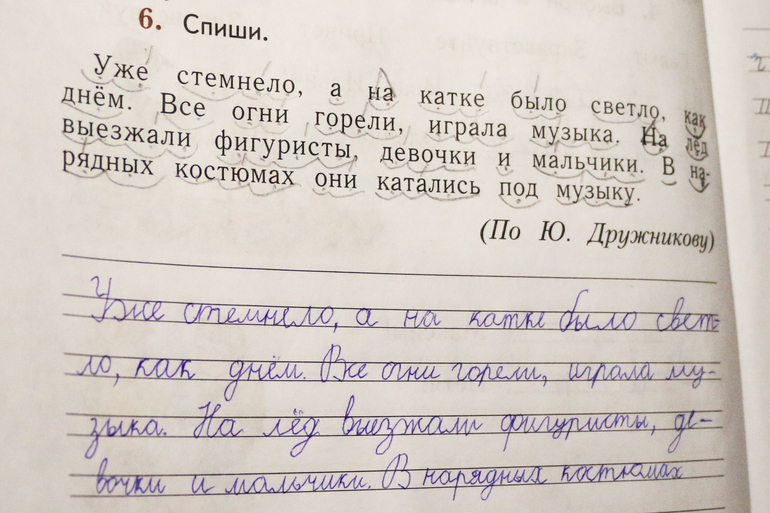 6. Спиши.
Уже стемнело, а на катке было светло, как
днём. Все огни горели, играла музыка. На лёд
выезжали фигуристы, девочки и мальчики. В на-
рядных костюмах они катались под музыку.
(По Ю. Дружникову)
Уже стемнело, а на катке было свет-
ло, как днём. Все огни горели, играла му-
зыка. На лёд выезжали фигуристы, де-
вочки и мальчики. В нарядных костюмах